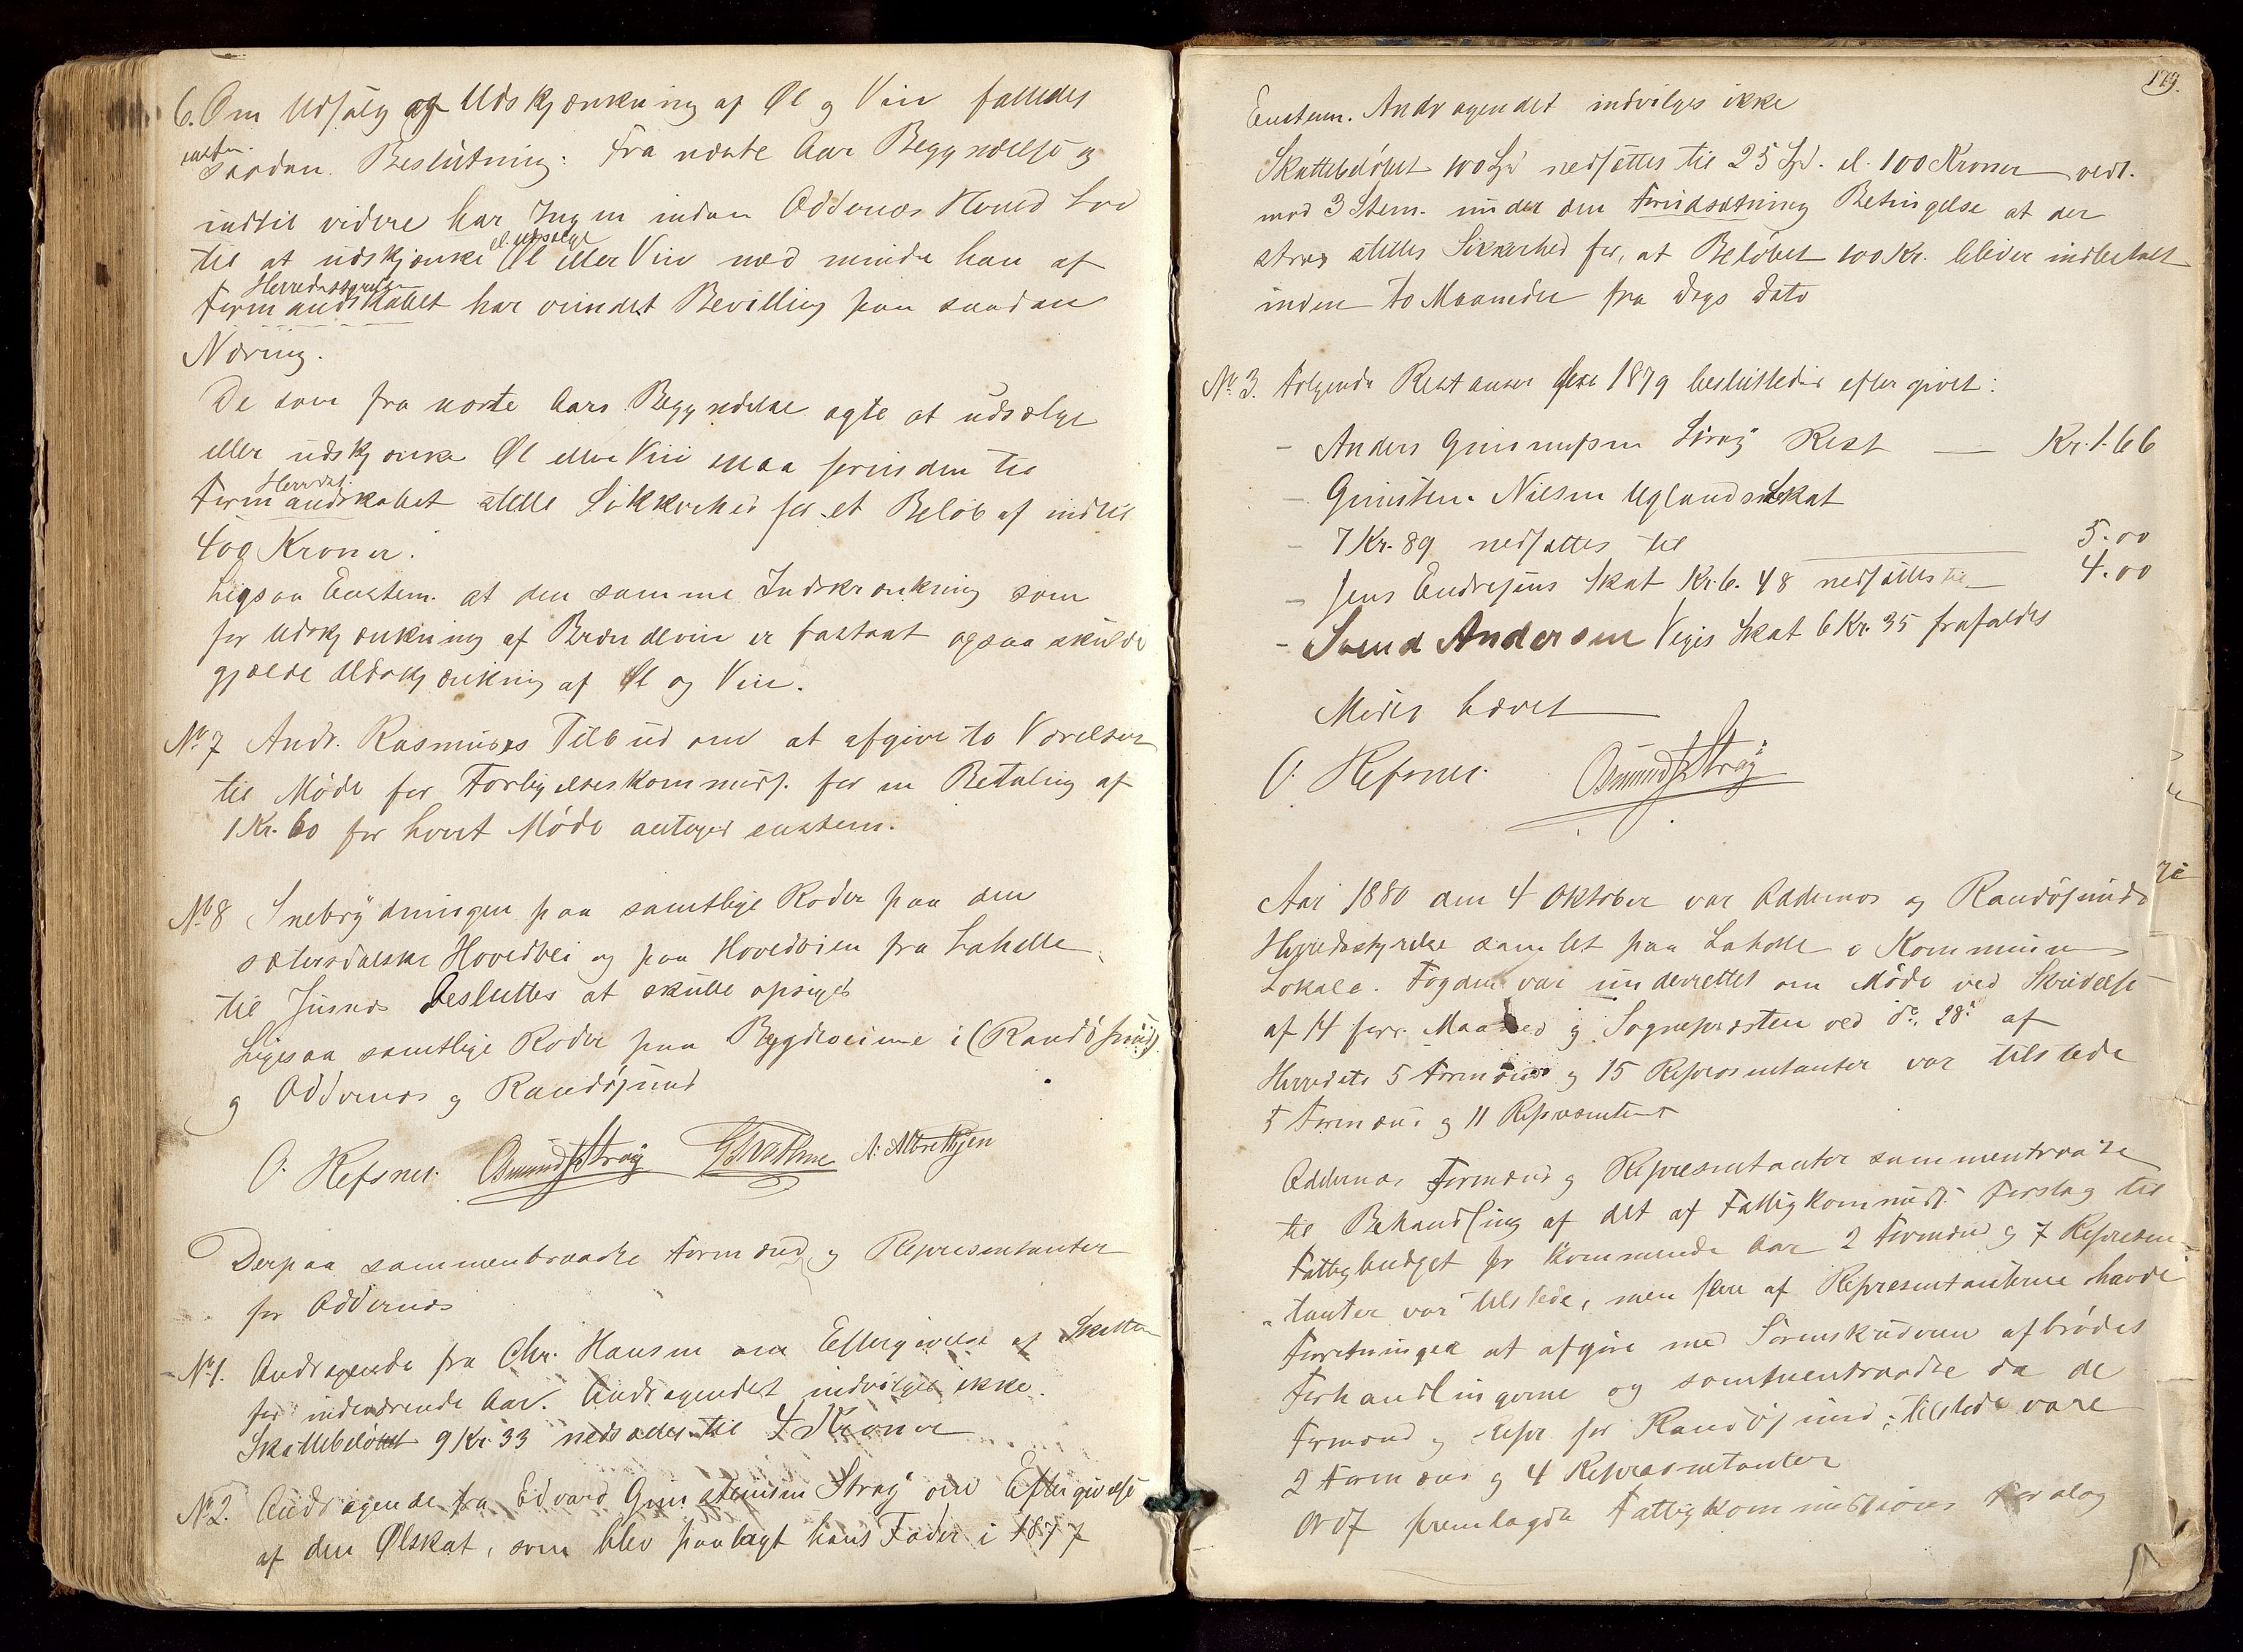 6. Om Udsalg og Udskjænkning af Øl og Vin falledes
enstem.
saadan Beslutning: Fra næste Aar Begyndelse og
indtil videre har Ingen inden Oddernes Herred Lov
til at udskjænke el. udsælge Øl eller Vin med mindre han af
Herredsstyrelsen
Formandskabet har vundet Bevilling paa saadan
Næring.
De som fra næste Aars Begyndelse agte at udsælge
eller udskjænke Øl eller Vin maa forinden til
Herreds.
Formandskabet stille Sikkerhed for et Beløb af indtil
400 Kroner.
Ligesaa Enstem. at den samme Indskrænkning som
for Udskjænkning af Brændevin er fastsat ogsaa skulde
gjælde Udskjænkning af Øl og Vin.
No 7 Andr. Rasmuses Tilbud om at afgive to Værelser
til Møde for Forligelseskommiss. for en Betaling af
1 Kr. 60 for hvert Møde antoges enstem.
No 8 Snebrydningen paa samtlige Roder paa den
sætersdalske Hovedvei og paa Hovedveien fra Lahelle
til Jusnes besluttes at skulle opsiges
Ligesaa samtlige Roder paa Bygdeveiene i (Randøsund)
g Oddernes og Randøsund
O. Refsnes. Osmund Strøy A. Albrethsen
Derpaa sammentraadte Formænd og Representanter
for Oddernes
No 1. Andragende fra Chr. Hansen om Eftergivelse af Skatten
for indeværende Aar. Andragendet indvilges ikke.
Skattebeløbet 9 Kr. 33 nedsættes til 4 Kroner
No 2. Andragende fra Edvard Gunsteinsen Strøy om Eftergivelse
af den Ølskat, som blev paalagt hans Fader i 1877
179.
Enstem. Andragendet indvilges ikke
Skattebeløbet 100 Spd nedsættes til 25 Spd. el. 100 Kroner vedt.
mod 3 Stem. under den Forudsætning Betingelse at der
strax stilles Sikkerhed for, at Beløbet 100 Kr. bliver indbetalt
inden to Maaneder fra Dags Dato
No 3. Følgende Restanser for 1879 besluttedes eftergivet:
- Anders Gunnufsen Strøy Rest — Kr. 1.66
- Gunsten. Nilsen Uglands Skat
- 7 Kr. 89 nedsættes til 5.00
- Jens Endresens Skat Kr. 6. 48 nedsættes til — 4.00
- Svend Andersen Veges Skat 6 Kr. 35 frafaldes
Mødet hævet
O. Refsnes. Osmund Strøy
Aar 1880 den 4 Oktober var Oddernes og Randøsunds
Herredsstyrelse samlet paa Lahelle i Kommunens
Lokale. Fogden var underrettet om Møde ved Skrivelse
af 14 forr. Maaned og Sognepresten ved do. 28. af
Herredets 5 Formænd og 15 Representanter var tilstede
5 Formænd og 11 Representant
Oddernes Formænd og Representanter sammentraadte
til Behandling af det af Fattigkommiss. Forslag til
Fattigbudget for kommende Aar 2 Formænd og 7 Represen-
-tanter var tilstede, men flere af Representanterne havde
Forretninger at afgjøre med Sorenskriveren afbrødes
Forhandlingerne og sammentraadte da de
Formænd og Repr for Randøsund; tilstede vare
2 Formænd og 4 Representanter
Ordf fremlagde Fattigkommissions Forslag